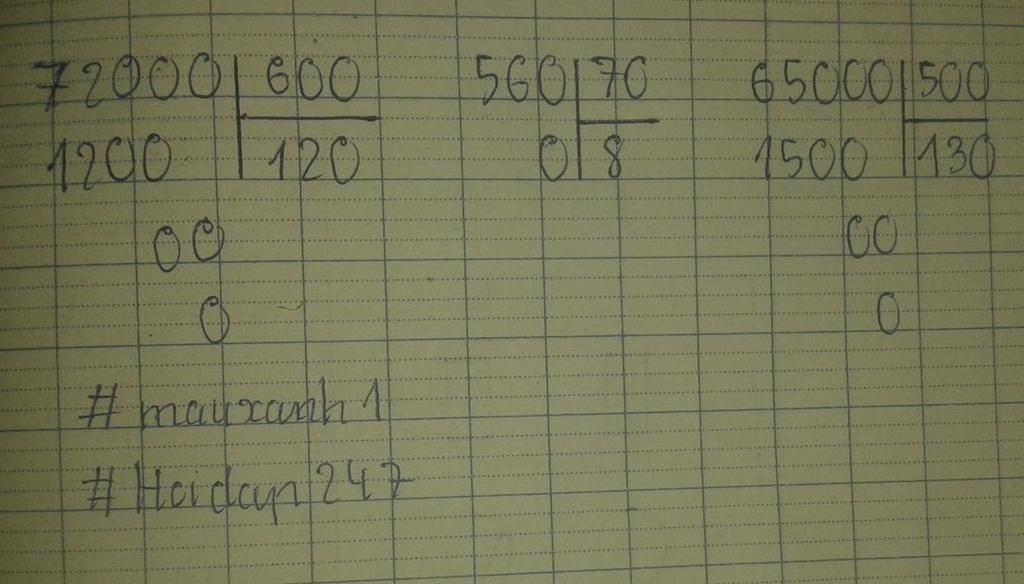 72000 600 560 70 65000 500
1200 120 0 8 1500 130
00 00
0 0
# mayxanh1
# Hoidap247